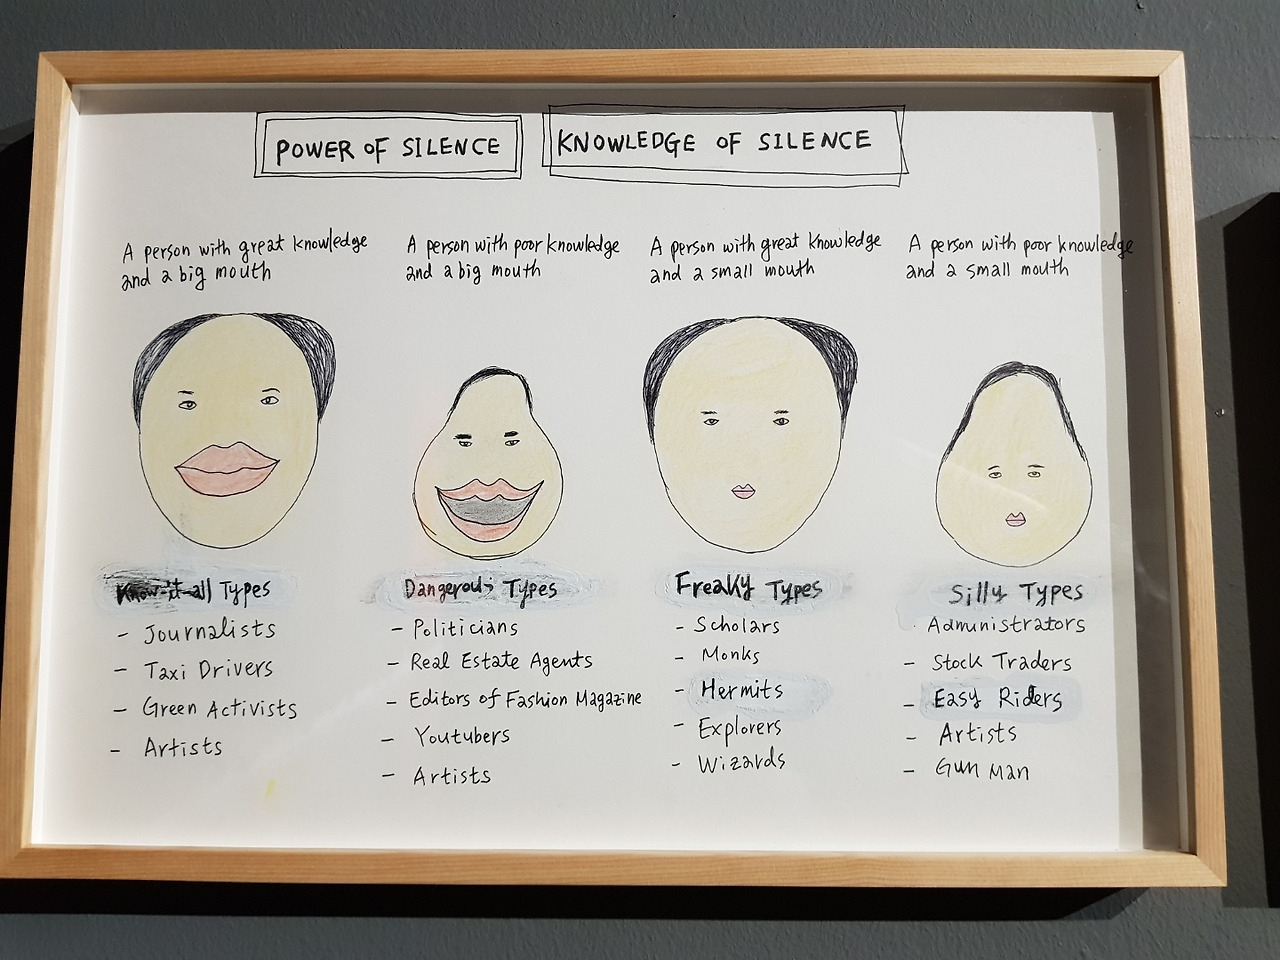 POWER OF SILENCE
KNOWLEDGE OF SILENCE
A person with great knowledge
and a big mouth
A person with poor knowledge
and a big mouth
A person with great knowledge
and a small mouth
A person with poor knowledge
and a small mouth
Know-it-all Types
- Journalists
- Taxi Drivers
- Green Activists
- Artists
Dangerous Types
- Politicians
- Real Estate Agents
- Editors of Fashion Magazine
- Youtubers
- Artists
Freaky Types
- Scholars
- Monks
- Hermits
- Explorers
- Wizards
Silly Types
Administrators
- Stock Traders
- Easy Riders
- Artists
- Gun Man